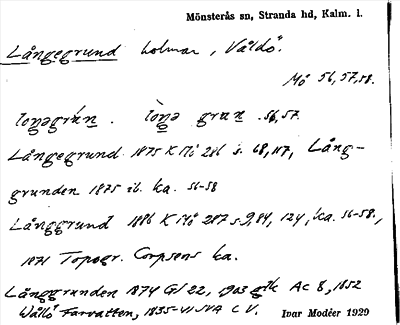 Mönsterås sn, Stranda hd, Kalm. l.
Långegrund holmar, Valdö.
Mö 56, 57, 58.
loŋəgrún . lòŋə grun . 56, 57.
Långegrund 1875 K Mö 286 s. 68, 117, Lång-
grunden 1875 ib. ka. 56-58
Långgrund 1886 K Mö 287 s. 9, 84, 124, ka. 56-58.,
1871 Topogr. Corpsens ka.
Långgrunden 1874 Gl 22, 1903 Ac 8, 1852
Wållö Farvatten, 1835-41 C V.
Ivar Modéer 1929